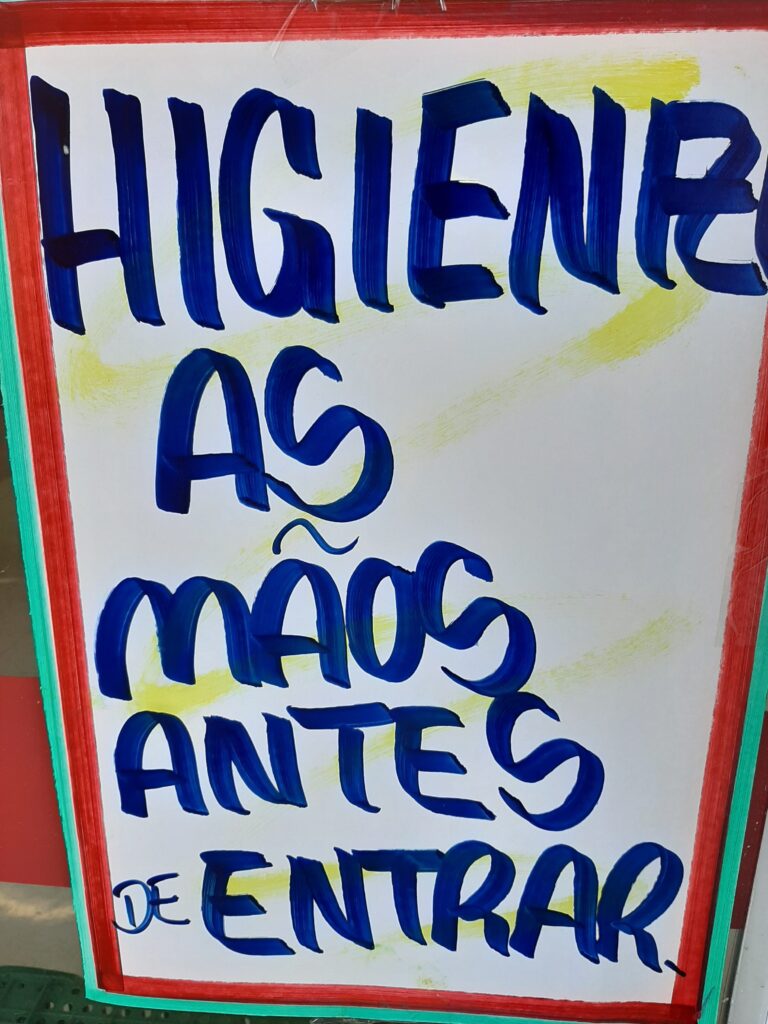 HIGIENIZE
AS
MÃOS
ANTES
DE ENTRAR.